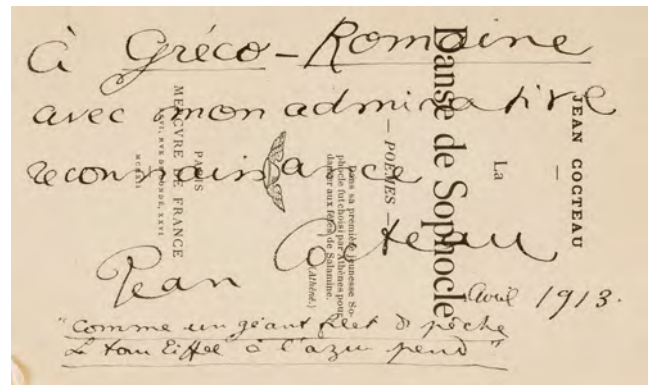 à Gréco-Romaine
avec mon admirative
reconnaissance
Jean Cocteau
avril 1913.
"Comme un géant filet de pêche
La tour Eiffel à l'azur pend"
JEAN COCTEAU
La
Danse de Sophocle
— POÈMES —
Dans sa première jeunesse So-
phocle fut choisi par Athènes pour
danser aux fêtes de Salamine.
(Athéné.)
PARIS
MERCVRE DE FRANCE
XXVI, RVE DE CONDÉ, XXVI
MCMXII